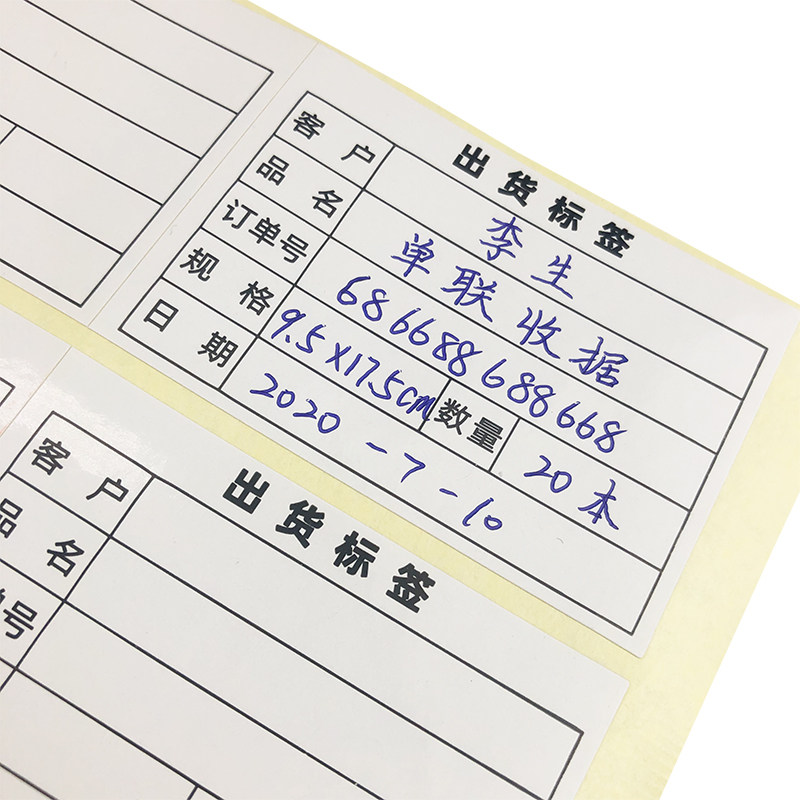 出货标签
客户 李生
品名 单联收据
订单号 686688688668
规格 9.5X17.5cm 数量 20本
日期 2020-7-10
出货标签
客户
品名
单号